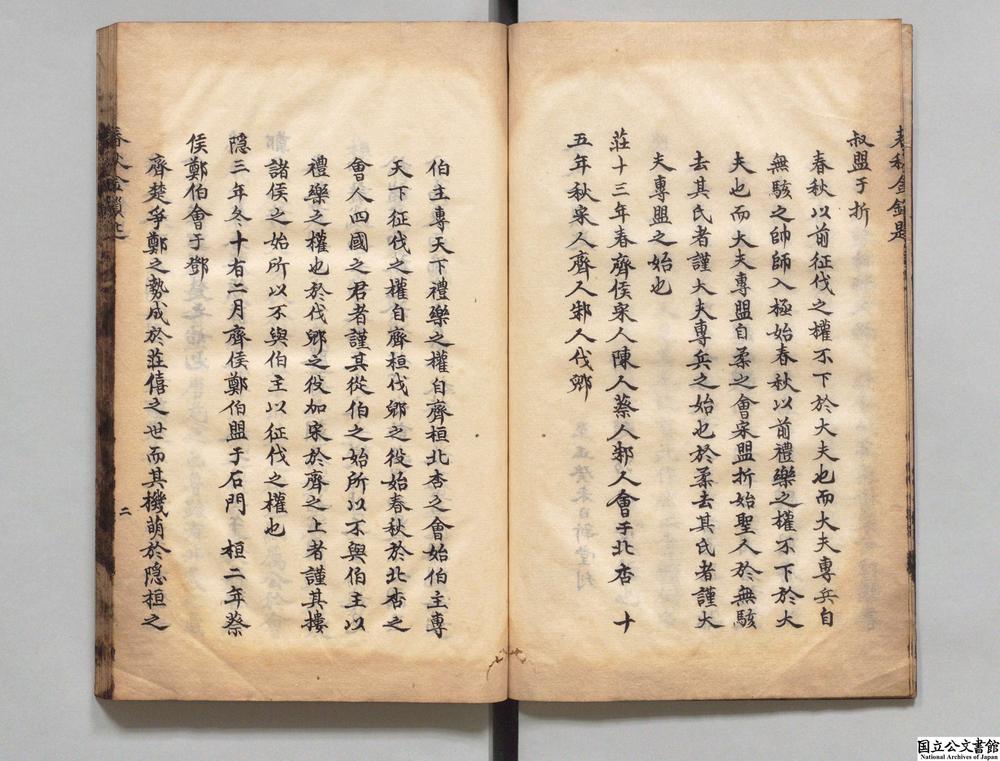 叔盟于折
春秋以前征伐之權不下於大夫也而大夫專兵自
無駭之帥師入極始春秋以前禮樂之權不下於大
夫也而大夫專盟自柔之會宋盟折始聖人於無駭
去其氏者謹大夫專兵之始也於柔去其氏者謹大
夫專盟之始也
莊十三年春齊侯宋人陳人蔡人邾人會于北杏 十
五年秋宋人齊人邾人伐郳
伯主專天下禮樂之權自齊桓北杏之會始伯主專
天下征伐之權自齊桓伐郳之役始春秋於北杏之
會人四國之君者謹其從伯之始所以不與伯主以
禮樂之權也於伐郳之役加宋於齊之上者謹其摟
諸侯之始所以不與伯主以征伐之權也
隱三年冬十有二月齊侯鄭伯盟于石門 桓二年蔡
侯鄭伯會于鄧
齊楚爭鄭之勢成於莊僖之世而其機萌於隱桓之
二
国立公文書館
National Archives of Japan